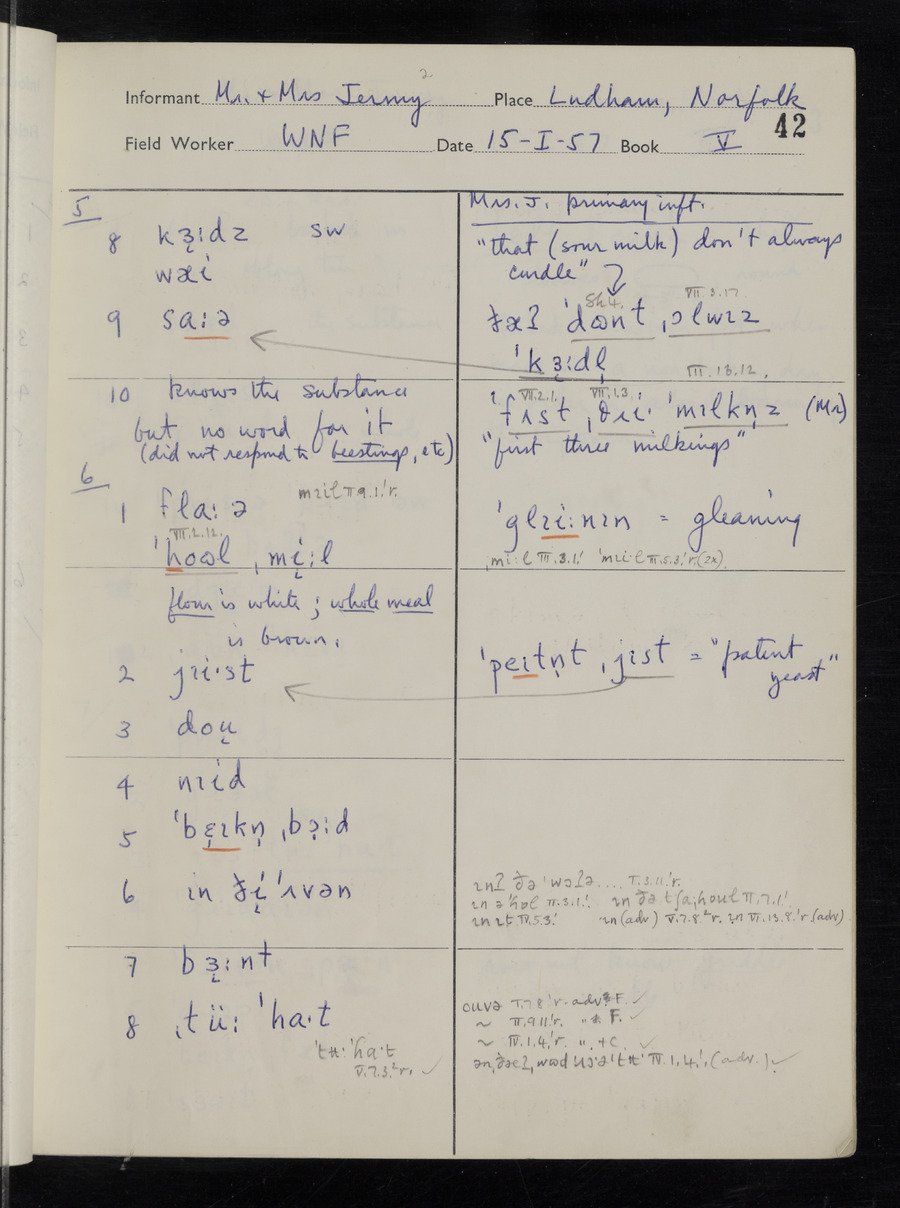 2
Informant Mr. & Mrs Jermy Place Ludham, Norfolk
42
Field Worker WNF Date 15-I-57 Book V
5
8 kɜ̣:dz sw
wæi
9 sa:ə
10 knows the substance
but no word for it
(did not respond to beestings, etc)
6
mɪil II.9.1.'r.
1 fla:ə
VII.2.12.
'hoɷl ˌmi:l
flour is white; whole meal
is brown.
2 jɪi·st
3 dou
4 nɪid
5 'bɛɪkn̩ ˌbɔ:d
6 in ði 'ʌvən
7 bɜ:nt
8 ˌtü: 'ha·t
'tʉ: 'ha·t
V.7.3.²r. ✓
Mrs. J. primary inft.
"that (sour milk) don't always
curdle"
VII.3.17
ðæʔ 'dɷnt ˌɔlwɪz
'kɜ:dl̩
VII.13.12.
VII.2.1. VII.1.3.
'fʌst ˌθɪi· 'mɪlkn̩z (Mr)
"first three milkings"
'glɪi:nɪn = gleaning
ˌmi:l III.3.1.' 'mɪil II.5.3.'r.(2x)
'peɪtn̩t ˌjist = "patent
yeast"
ɪnʔ ðə 'wɔʔə.... I.3.11.'r.
ɪn ə 'hɒl II.3.1.' ɪn ðə tʃaˌhoul II.7.1.'
ɪn ɪt IV.5.3.' ɪn (adv) V.7.8.²r. ɪn VI.13.8.'r.(adv)
ouvə I.7.8'r. adv. F. ✓
~ II.9.11'r. " F. ✓
~ IV.1.4.'r. " +C. ✓
IV.1.4.' (adv.) ✓